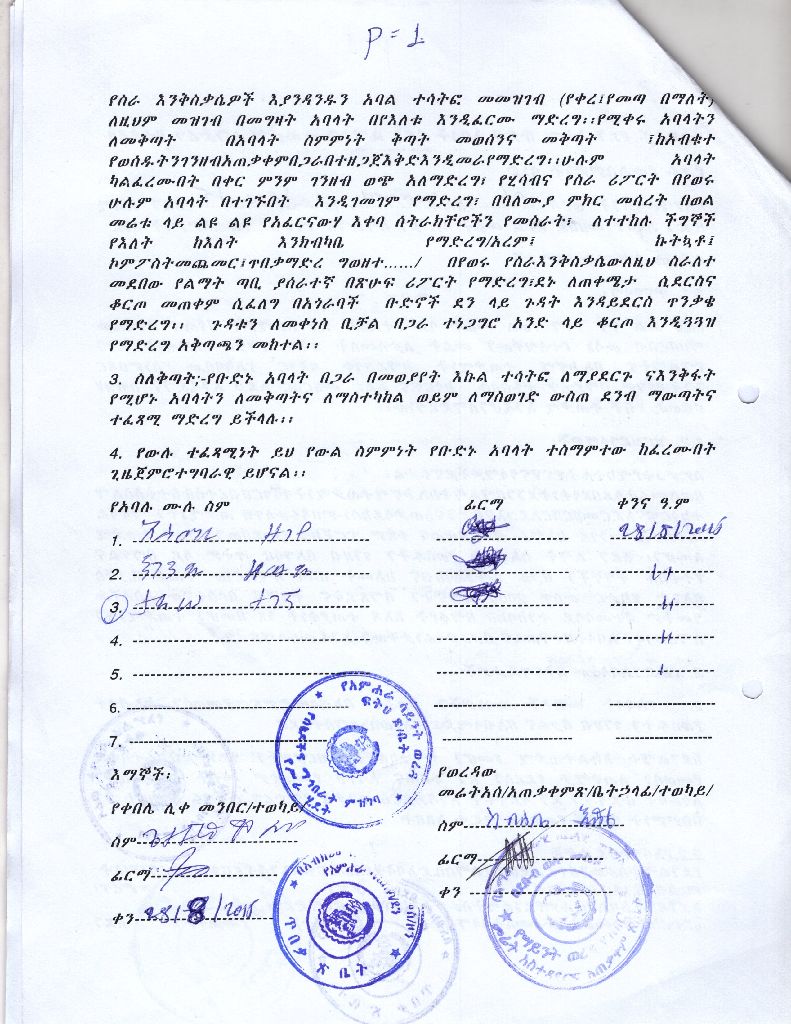 P = 1
የስራ እንቅስቃሴዎች እያንዳንዱን አባል ተሳትፎ መመዝገብ (የቀረ፤የመጣ በማለት)
ለዚህም መዝገብ በመግዛት አባላት በየእለቱ እንዲፈርሙ ማድረግ፡፡የሚቀሩ አባላትን
ለመቅጣት በአባላት ስምምነት ቅጣት መወሰንና መቅጣት ፣ከአብቁተ
የወሰዱትንገንዘብአጠቃቀምበጋራበተዘጋጀእቅድእንዲመራየማድረግ፡፡ሁሉም አባላት
ካልፈረሙበት በቀር ምንም ገንዘብ ወጭ አለማድረግ፣ የሂሳብና የስራ ሪፖርት በየወሩ
ሁሉም አባላት በተገኙበት እንዲገመገም የማድረግ፣ በባለሙያ ምክር መሰረት በወል
መሬቱ ላይ ልዩ ልዩ የአፈርናውሃ እቀባ ስትራክቸሮችን የመስራት፣ ለተተከሉ ችግኞች
የእለት ከእለት እንክብካቤ የማድረግ/አረም፤ ኩትኳቶ፤
ኮምፖስትመጨመር፤ጥበቃማድረ ግወዘተ....../ በየወሩ የስራእንቅስቃሴውለዚህ ስራለተ
መደበው የልማት ጣቢ ያሰራተኛ በጽሁፍ ሪፖርት የማድረግ፣ደኑ ለጠቀሜታ ሲደርስና
ቆርጦ መጠቀም ሲፈለግ በአጎራባች ቡድኖች ደን ላይ ጉዳት እንዳይደርስ ጥንቃቄ
የማድረግ፡፡ ጉዳቱን ለመቀነስ ቢቻል በጋራ ተነጋግሮ አንድ ላይ ቆርጦ እንዲጓጓዝ
የማድረግ አቅጣጫን መከተል፡፡
3. ስለቅጣት;-የቡድኑ አባላት በጋራ በመወያየት እኩል ተሳትፎ ለማያደርጉ ናእንቅፋት
የሚሆኑ አባላትን ለመቅጣትና ለማስተካከል ወይም ለማስወገድ ውስጠ ደንብ ማውጣትና
ተፈጻሚ ማድረግ ይችላሉ፡፡
4. የውሉ ተፈጻሚነት ይህ የውል ስምምነት የቡድኑ አባላት ተስማምተው ከፈረሙበት
ጊዜጀምሮተግባራዊ ይሆናል፡፡
የአባሉ ሙሉ ስም ፊርማ ቀንና ዓ.ም
1. 28/8/2015
2.
3.
4.
5.
6.
7.
እማኞች፡ የወረዳው
መሬትአስ/አጠቃቀምጽ/ቤትኃላፊ/ተወካይ/
የቀበሌ ሊቀ መንበር/ተወካይ/
ስም ስም
ፊርማ ፊርማ
ቀን 28/8/2015 ቀን
የአምሐራ ሳይንት ወረዳ
ፍትህ ጽ/ቤት
ፍትህ ጽ ቤት